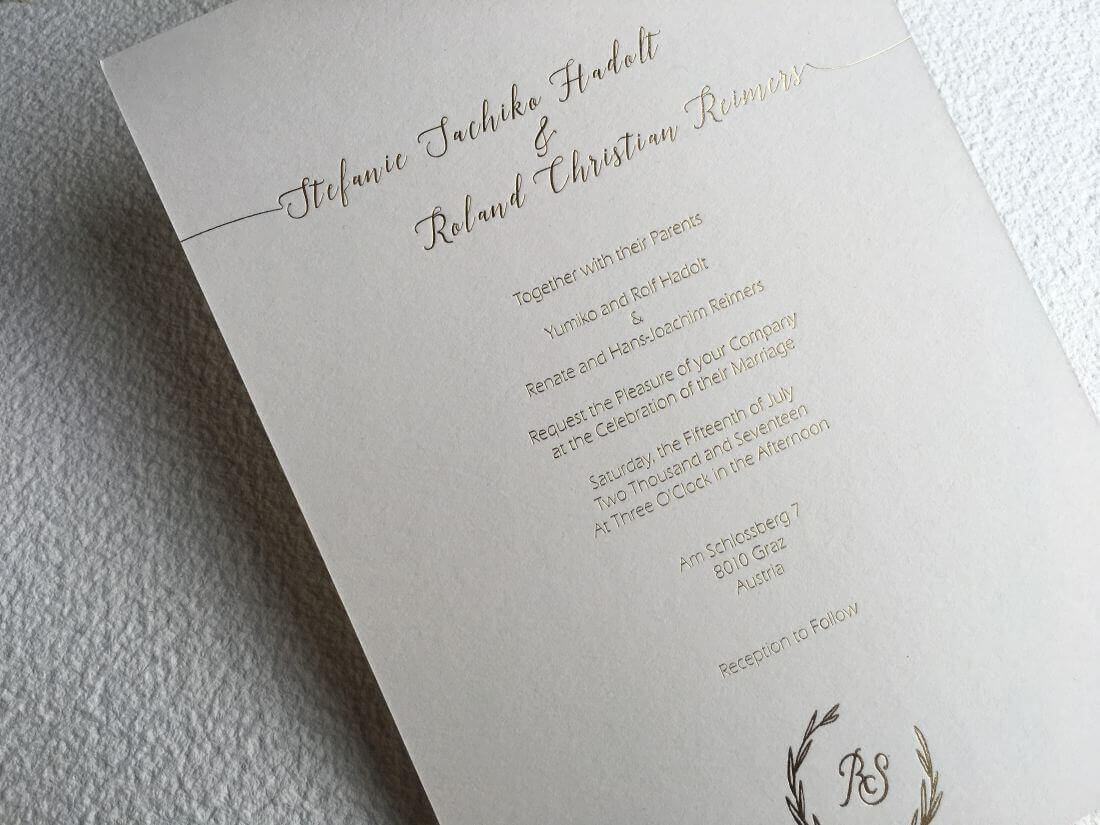 Stefanie Sachiko Hadolt
&
Roland Christian Reimers
Together with their Parents
Yumiko and Rolf Hadolt
&
Renate and Hans-Joachim Reimers
Request the Pleasure of your Company
at the Celebration of their Marriage
Saturday, the Fifteenth of July
Two Thousand and Seventeen
At Three O'Clock in the Afternoon
Am Schlossberg 7
8010 Graz
Austria
Reception to Follow
RS